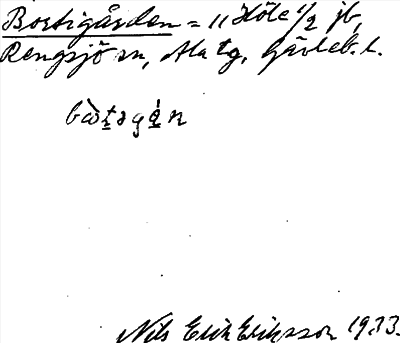 Bortigården = 11 Höle 1/2 jb,
Rengsjö sn, Ala tg, Gävleb. l.
Nils Erik Eriksson 1933.